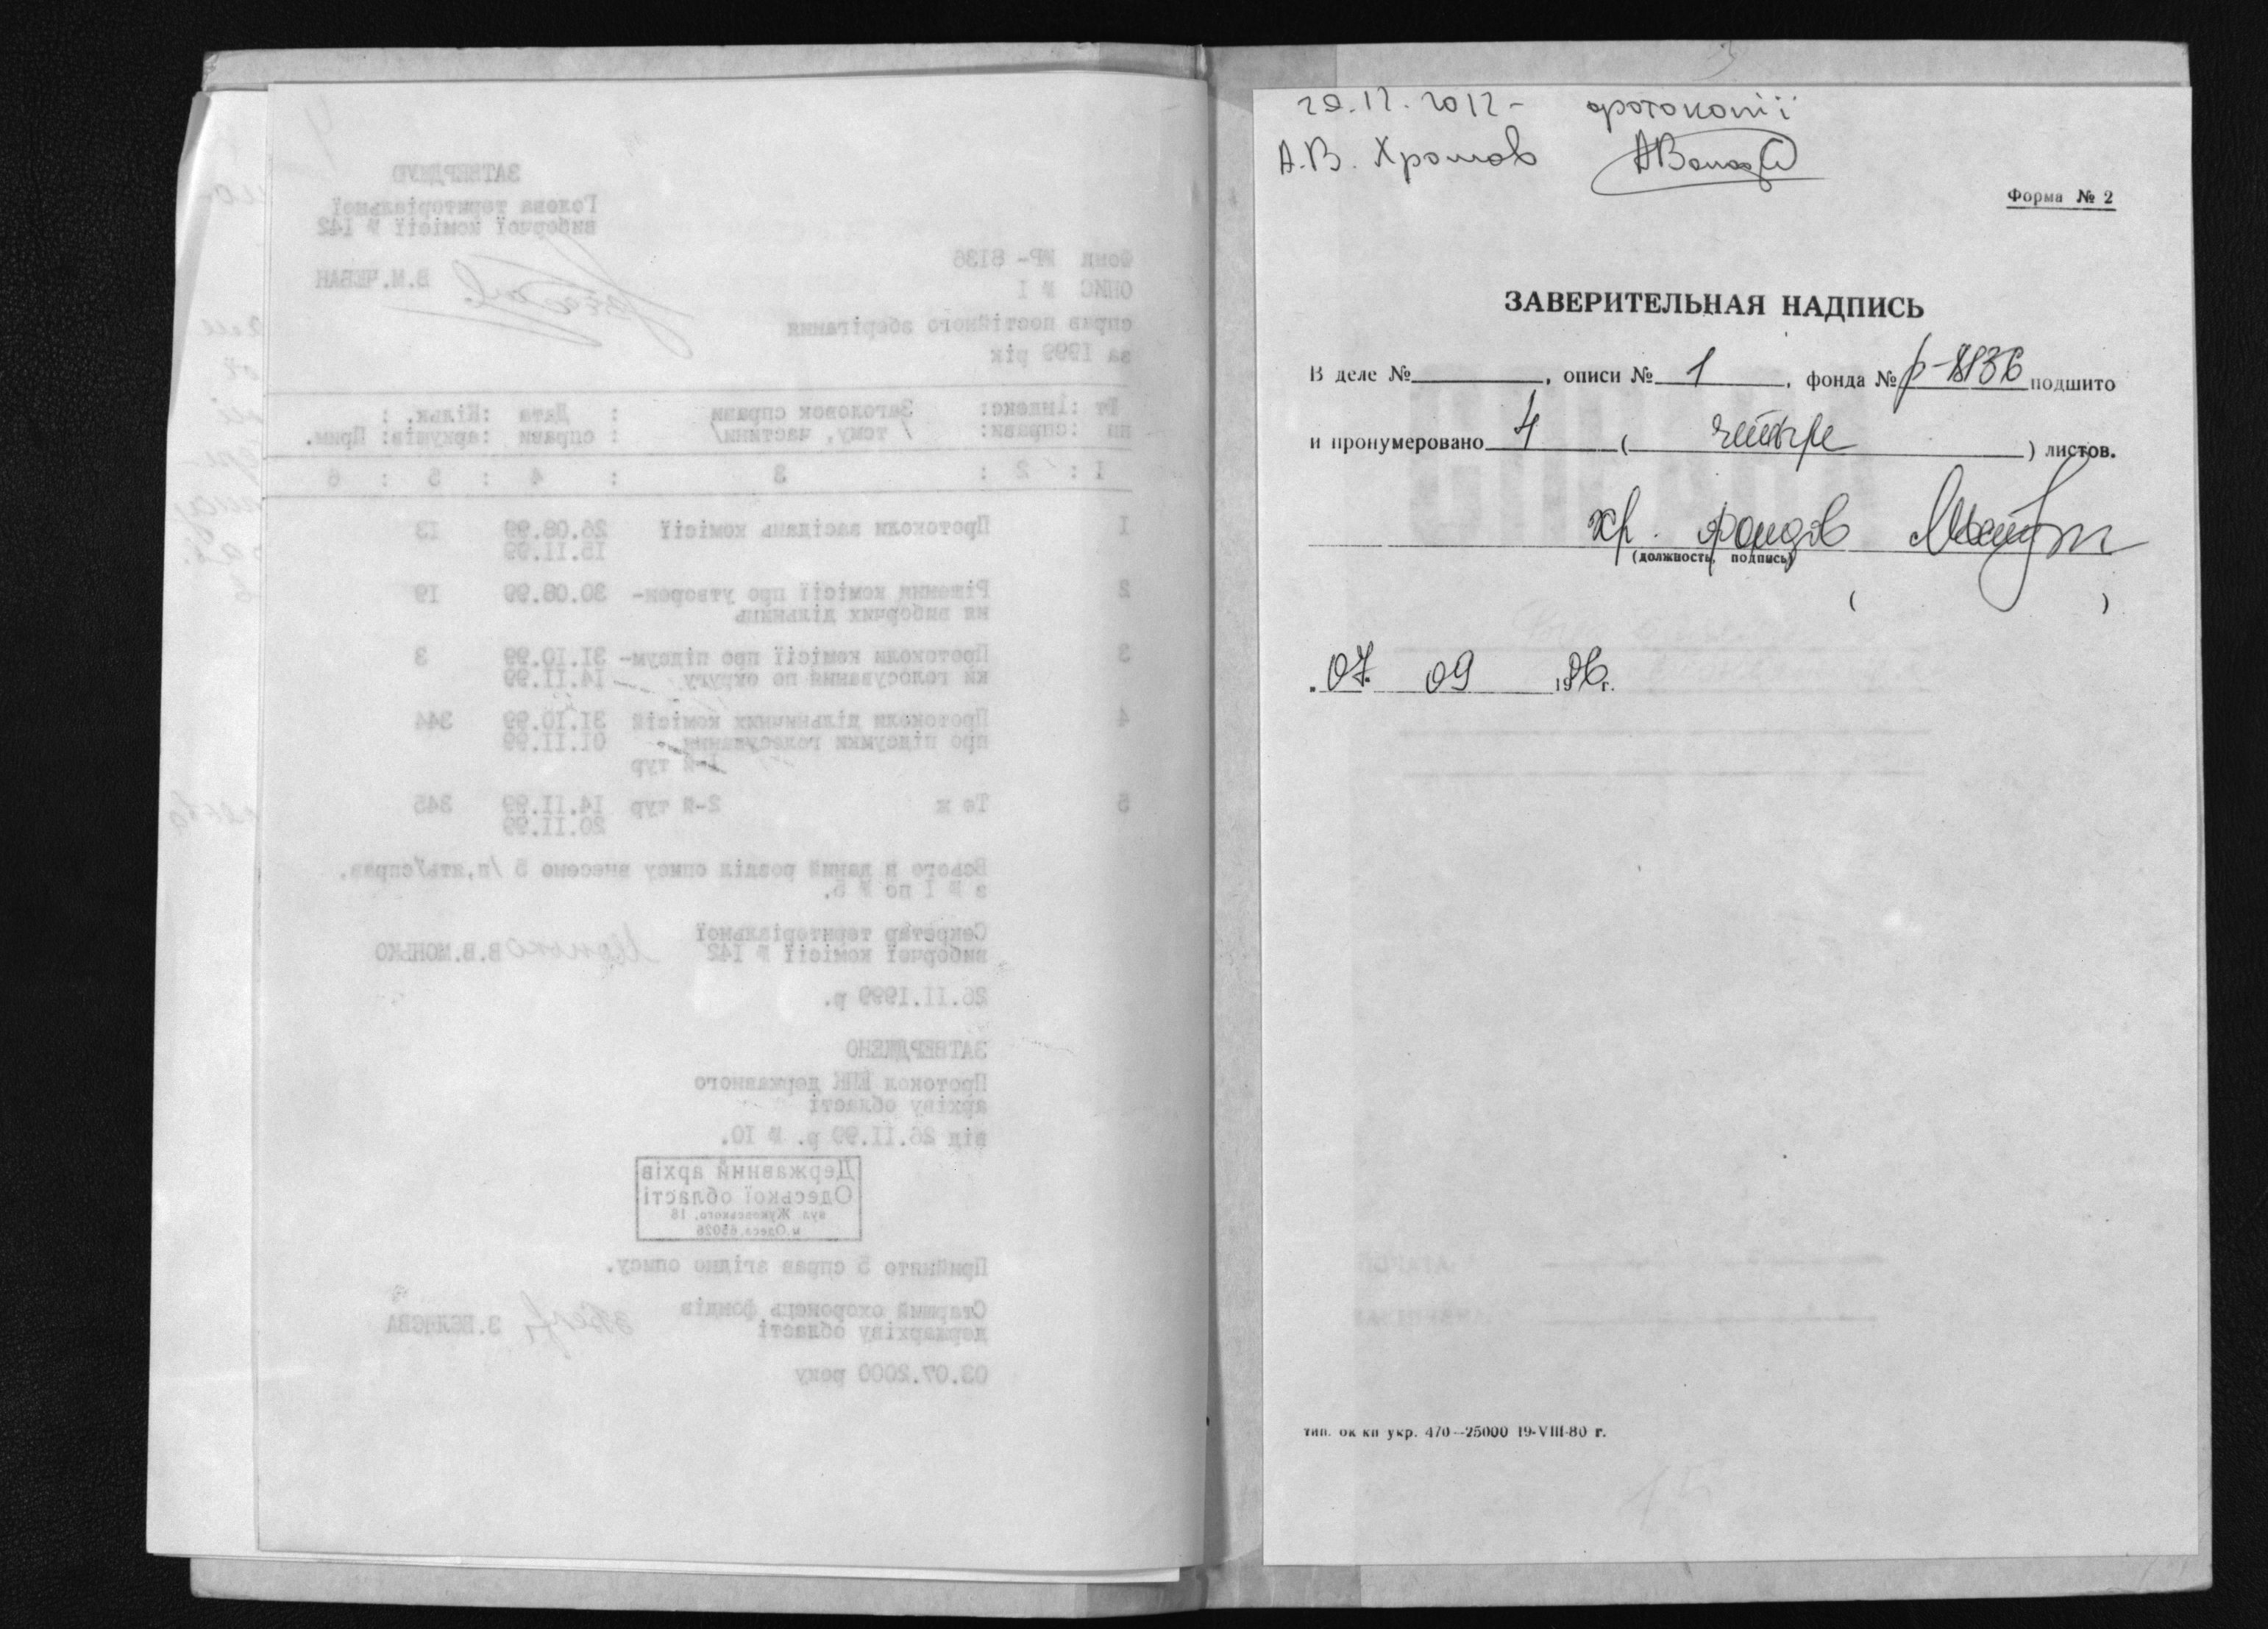 ЗАТВЕРДЖУЮ
Голова територіальної
виборчої комісії № І42
В.М.ЧЕБАН
Фонд №Р- 8136
ОПИС № І
справ постійного зберігання
за 1999 рік
:індекс: Заголовок справи : Дата :Кільк. :
пп :справи: / тому, частини/ : справи :аркушів: Прим.
І : 2 : 3 : 4 : 5 : 6
І Протоколи засідань комісії 26.08.99 ІЗ
І5.ІІ.99
2 Рішення комісії про утворен- 30.08.99 І9
ня виборчих дільниць
3 Протоколи комісії про підсум- 3І.ІО.99 3
ки голосування по округу І4.ІІ.99
4 Протоколи дільничних комісій 3І.ІО.99 344
про підсумки голосування ОІ.ІІ.99
І-й тур
5 Те ж 2-й тур І4.ІІ.99 345
20.ІІ.99
Всього в даний розділ опису внесено 5 /п,ять/справ.
з № І по № 5.
Секретар територіальної
виборчої комісії № І42 В.В.МОНЬКО
26.ІІ.І999 р.
ЗАТВЕРДЖЕНО
Протокол ЕПК державного
архіву області
від 26.ІІ.99 р. № ІО.
Державний архів
Одеської області
вул. Жуковського, 18
м.Одеса,65026
Прийнято 5 справ згідно опису.
Старший охоронець фондів
держархіву області
03.07.2000 року
29.12.2012 - фотокопії
А.В. Хромов
Форма № 2
ЗАВЕРИТЕЛЬНАЯ НАДПИСЬ
В деле № , описи № 1 , фонда № р-8136 подшито
и пронумеровано 4 ( четыре ) листов.
хр. фондов
(должность, подпись)
( )
07. 09 1906 г.
тип. ок кп укр. 470—25000 19-VIII-80 г.